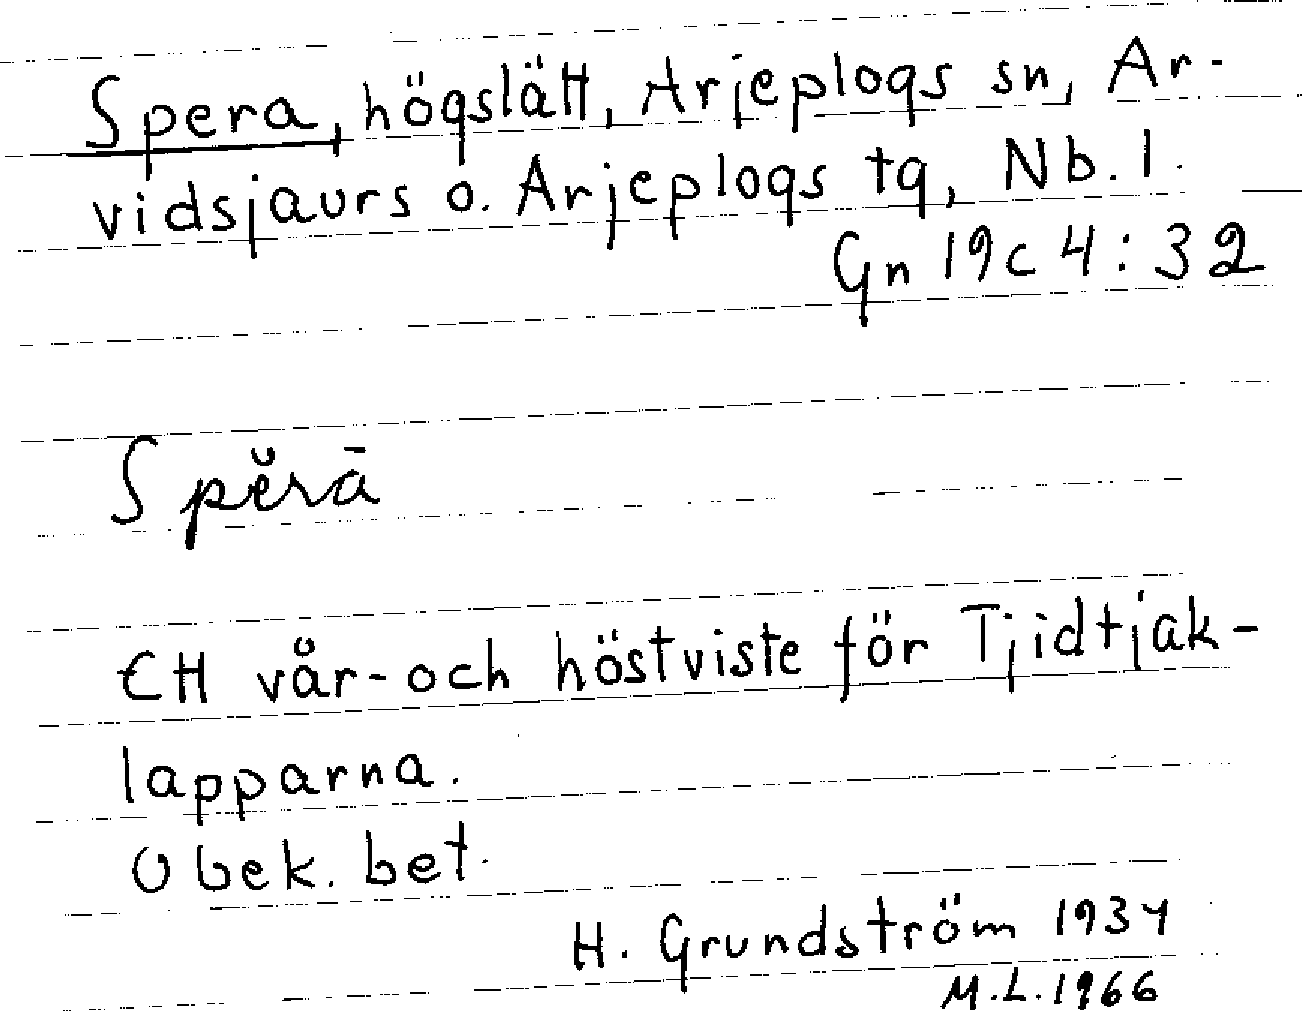 Spera, högslätt, Arjeplogs sn, Ar-
vidsjaurs o. Arjeplogs tg, Nb. l.
Gn 19c 4:32
Spĕrā
Ett vår- och höstviste för Tjidtjak-
lapparna.
Obek. bet.
H. Grundström 1934
M.L. 1966